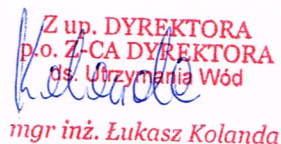 Z up. DYREKTORA
p.o. Z-CA DYREKTORA
ds. Utrzymania Wód
mgr inż. Łukasz Kolanda